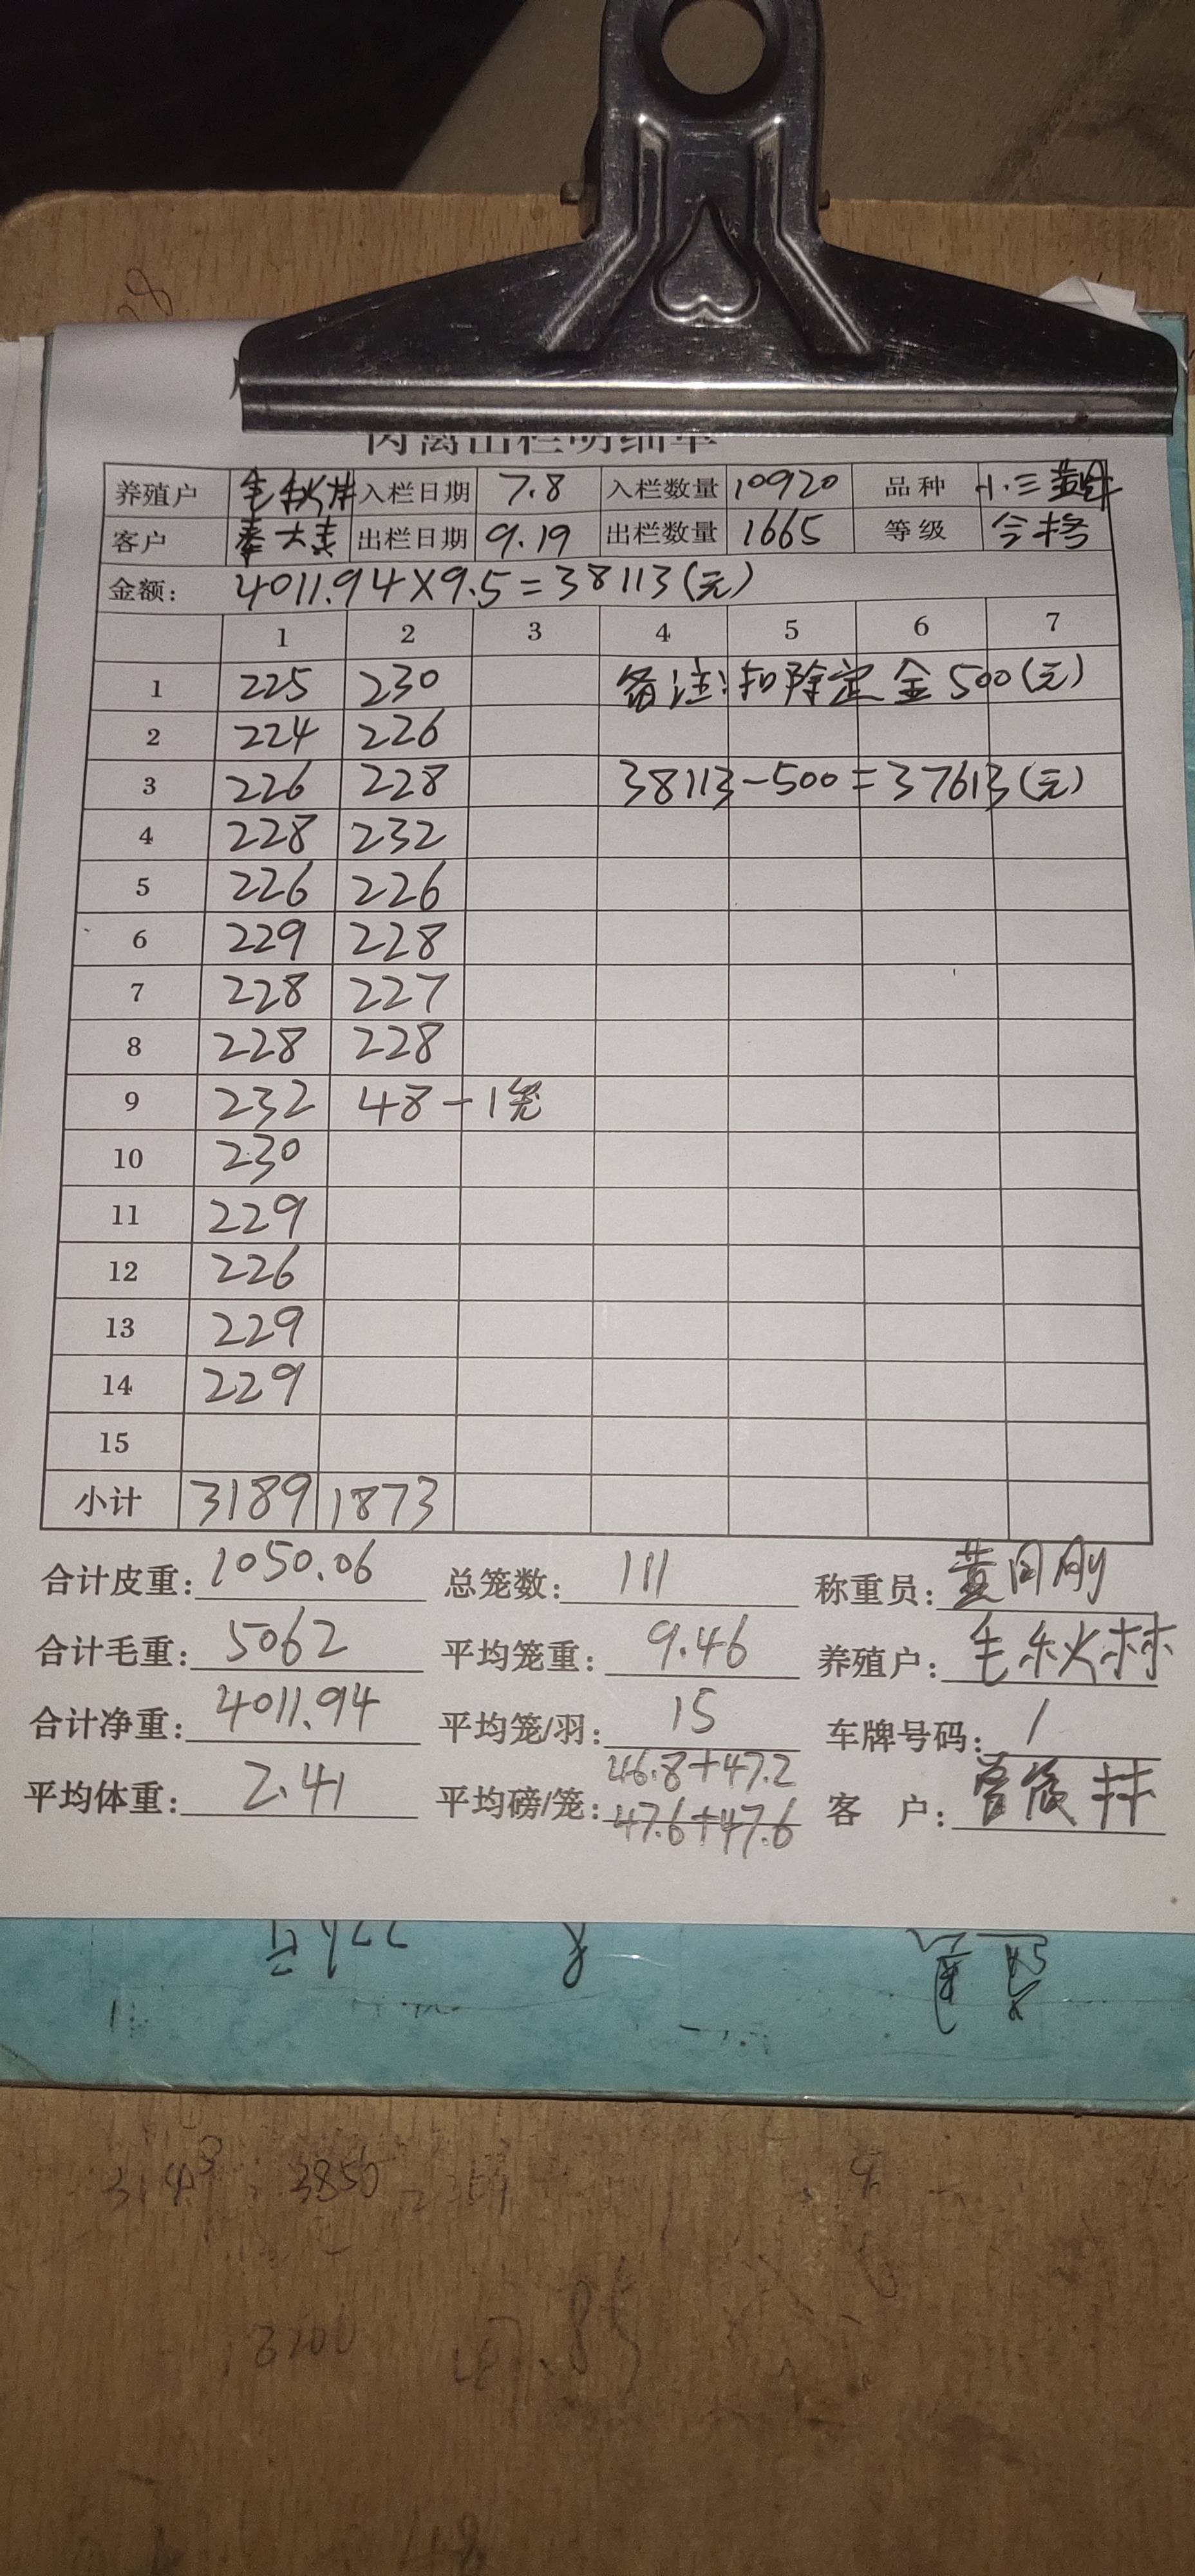 肉禽出栏明细单
养殖户 毛秋林 入栏日期 7.8 入栏数量 10920 品种 小三黄
客户 秦大美 出栏日期 9.19 出栏数量 1665 等级 合格
金额: 4011.94×9.5=38113(元)
1 2 3 4 5 6 7
1 225 230 备注:扣除定金500(元)
2 224 226
3 226 228 38113-500=37613(元)
4 228 232
5 226 226
6 229 228
7 228 227
8 228 228
9 232 48-1笼
10 230
11 229
12 226
13 229
14 229
15
小计 3189 1873
合计皮重: 1050.06 总笼数: 111 称重员: 黄同刚
合计毛重: 5062 平均笼重: 9.46 养殖户: 毛秋林
合计净重: 4011.94 平均笼/羽: 15 车牌号码: 1
46.8+47.2
平均体重: 2.41 平均磅/笼: 47.6+47.6 客 户:
3850
3200